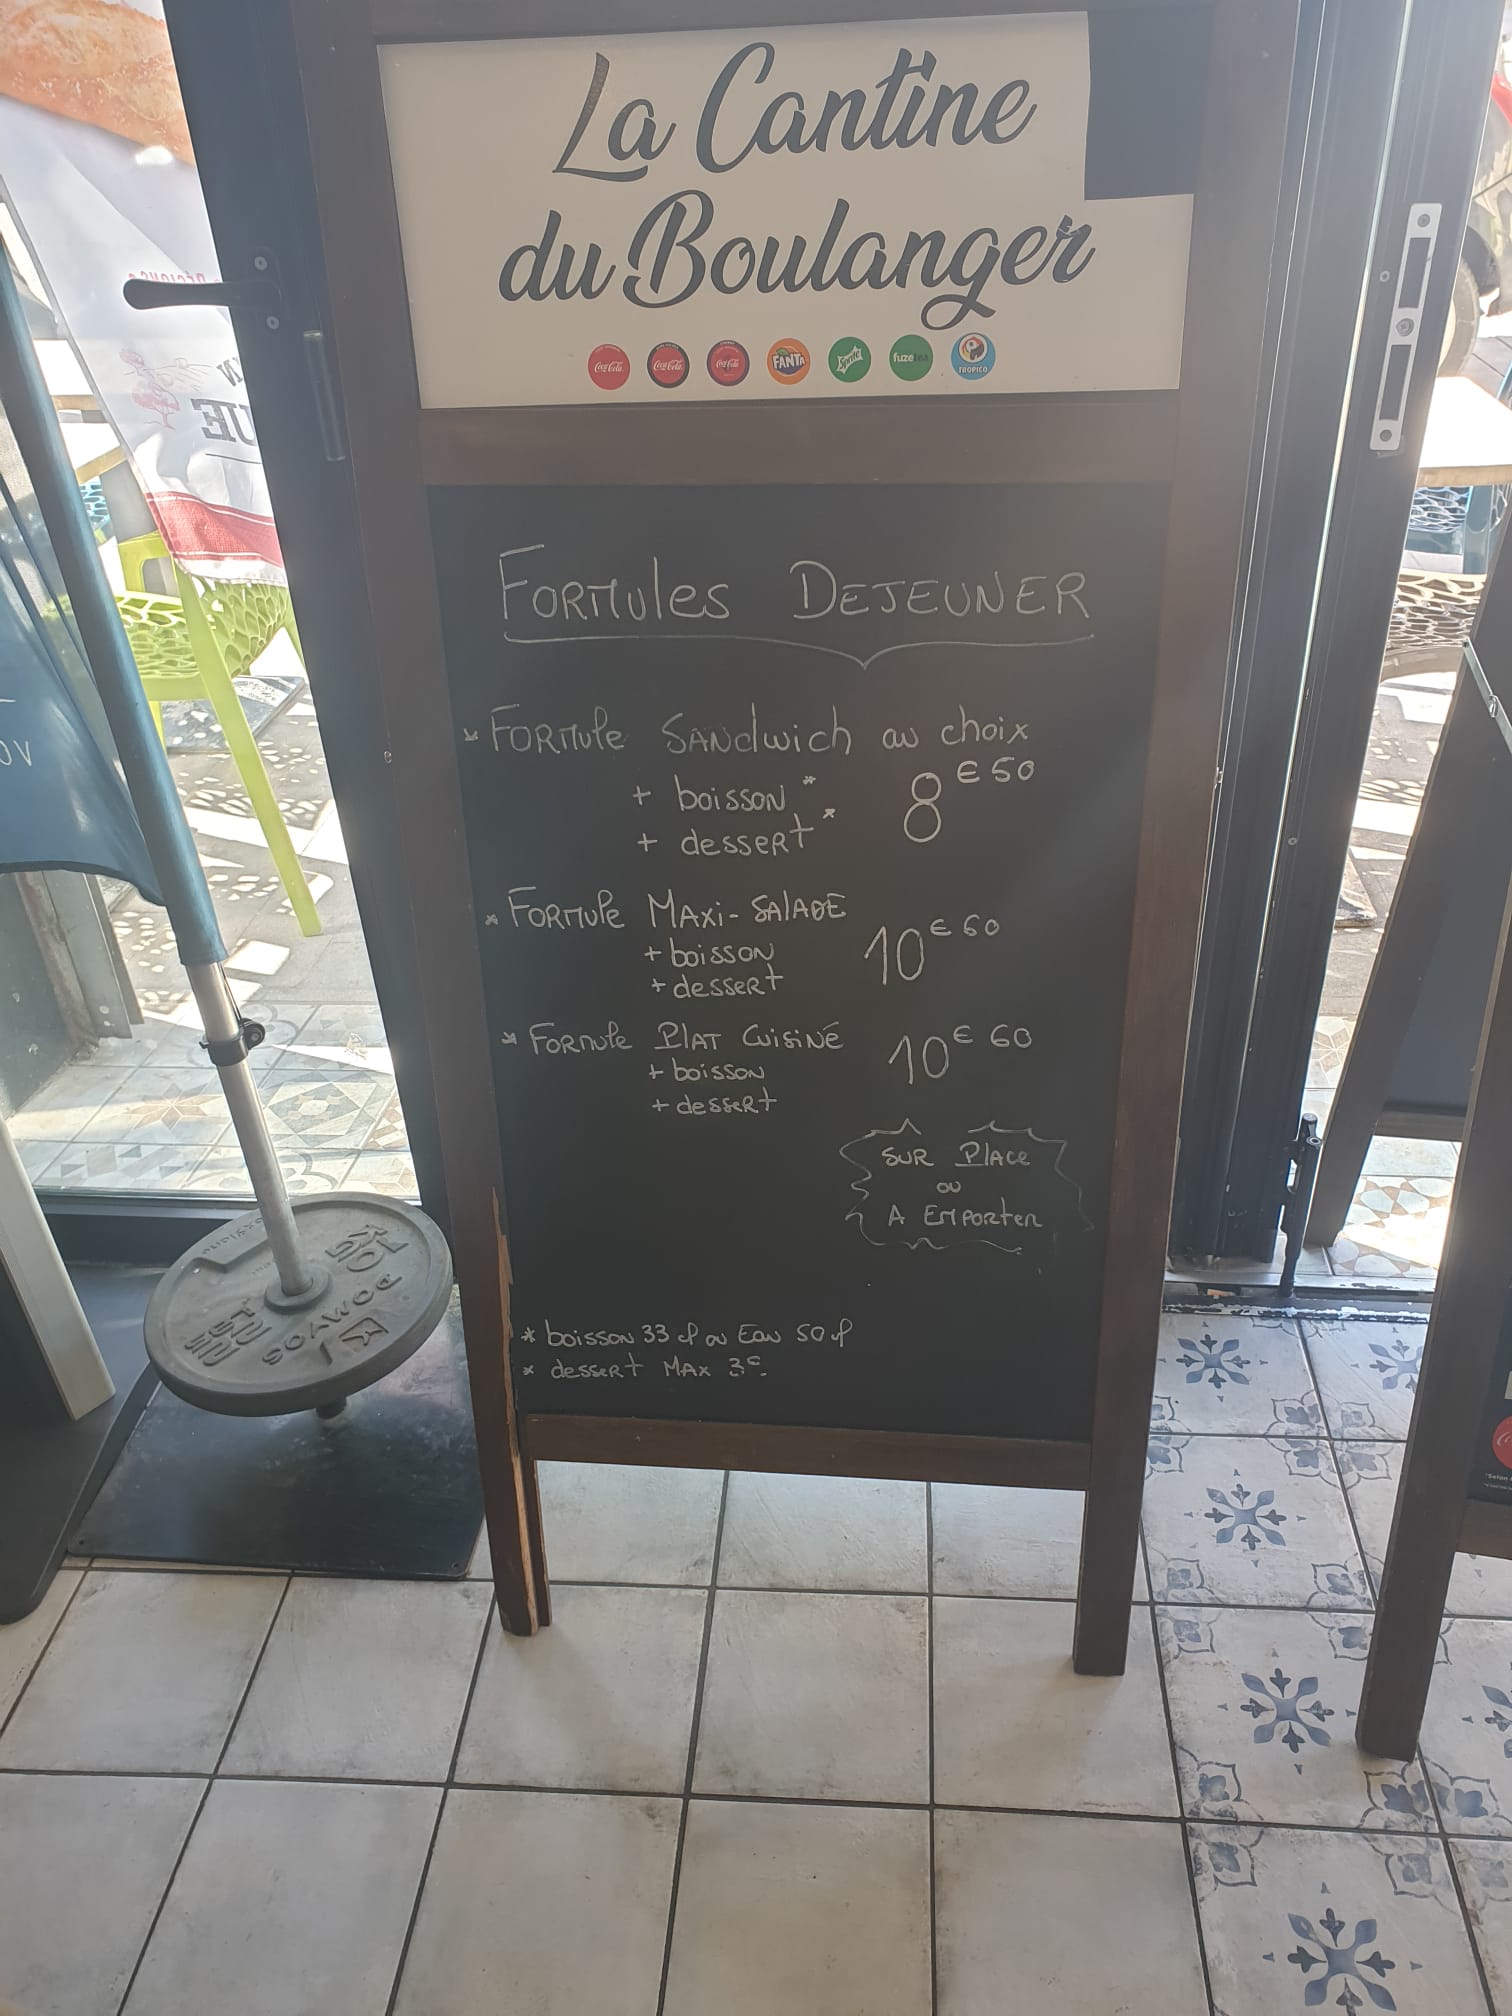 La Cantine
du Boulanger
Coca-Cola Coca-Cola Coca-Cola FANTA Sprite fuzetea TROPICO
FORMULES DEJEUNER
* FORMULE SANDWICH au choix
+ boisson *
+ dessert *
8€50
* FORMULE MAXI-SALADE
+ boisson
+ dessert
10€60
* FORMULE PLAT CUISINÉ
+ boisson
+ dessert
10€60
SUR PLACE
ou
A EMPORTER
* boisson 33 cl ou Eau 50 cl
* dessert MAX 3€.
10
KG
DOMYOS
22
LBS